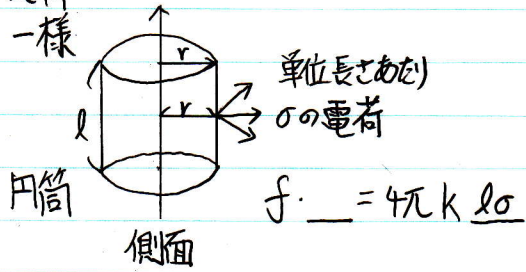 一様
r
l
r
単位長さあたり
σの電荷
円筒
f・__ = 4πk lσ
側面